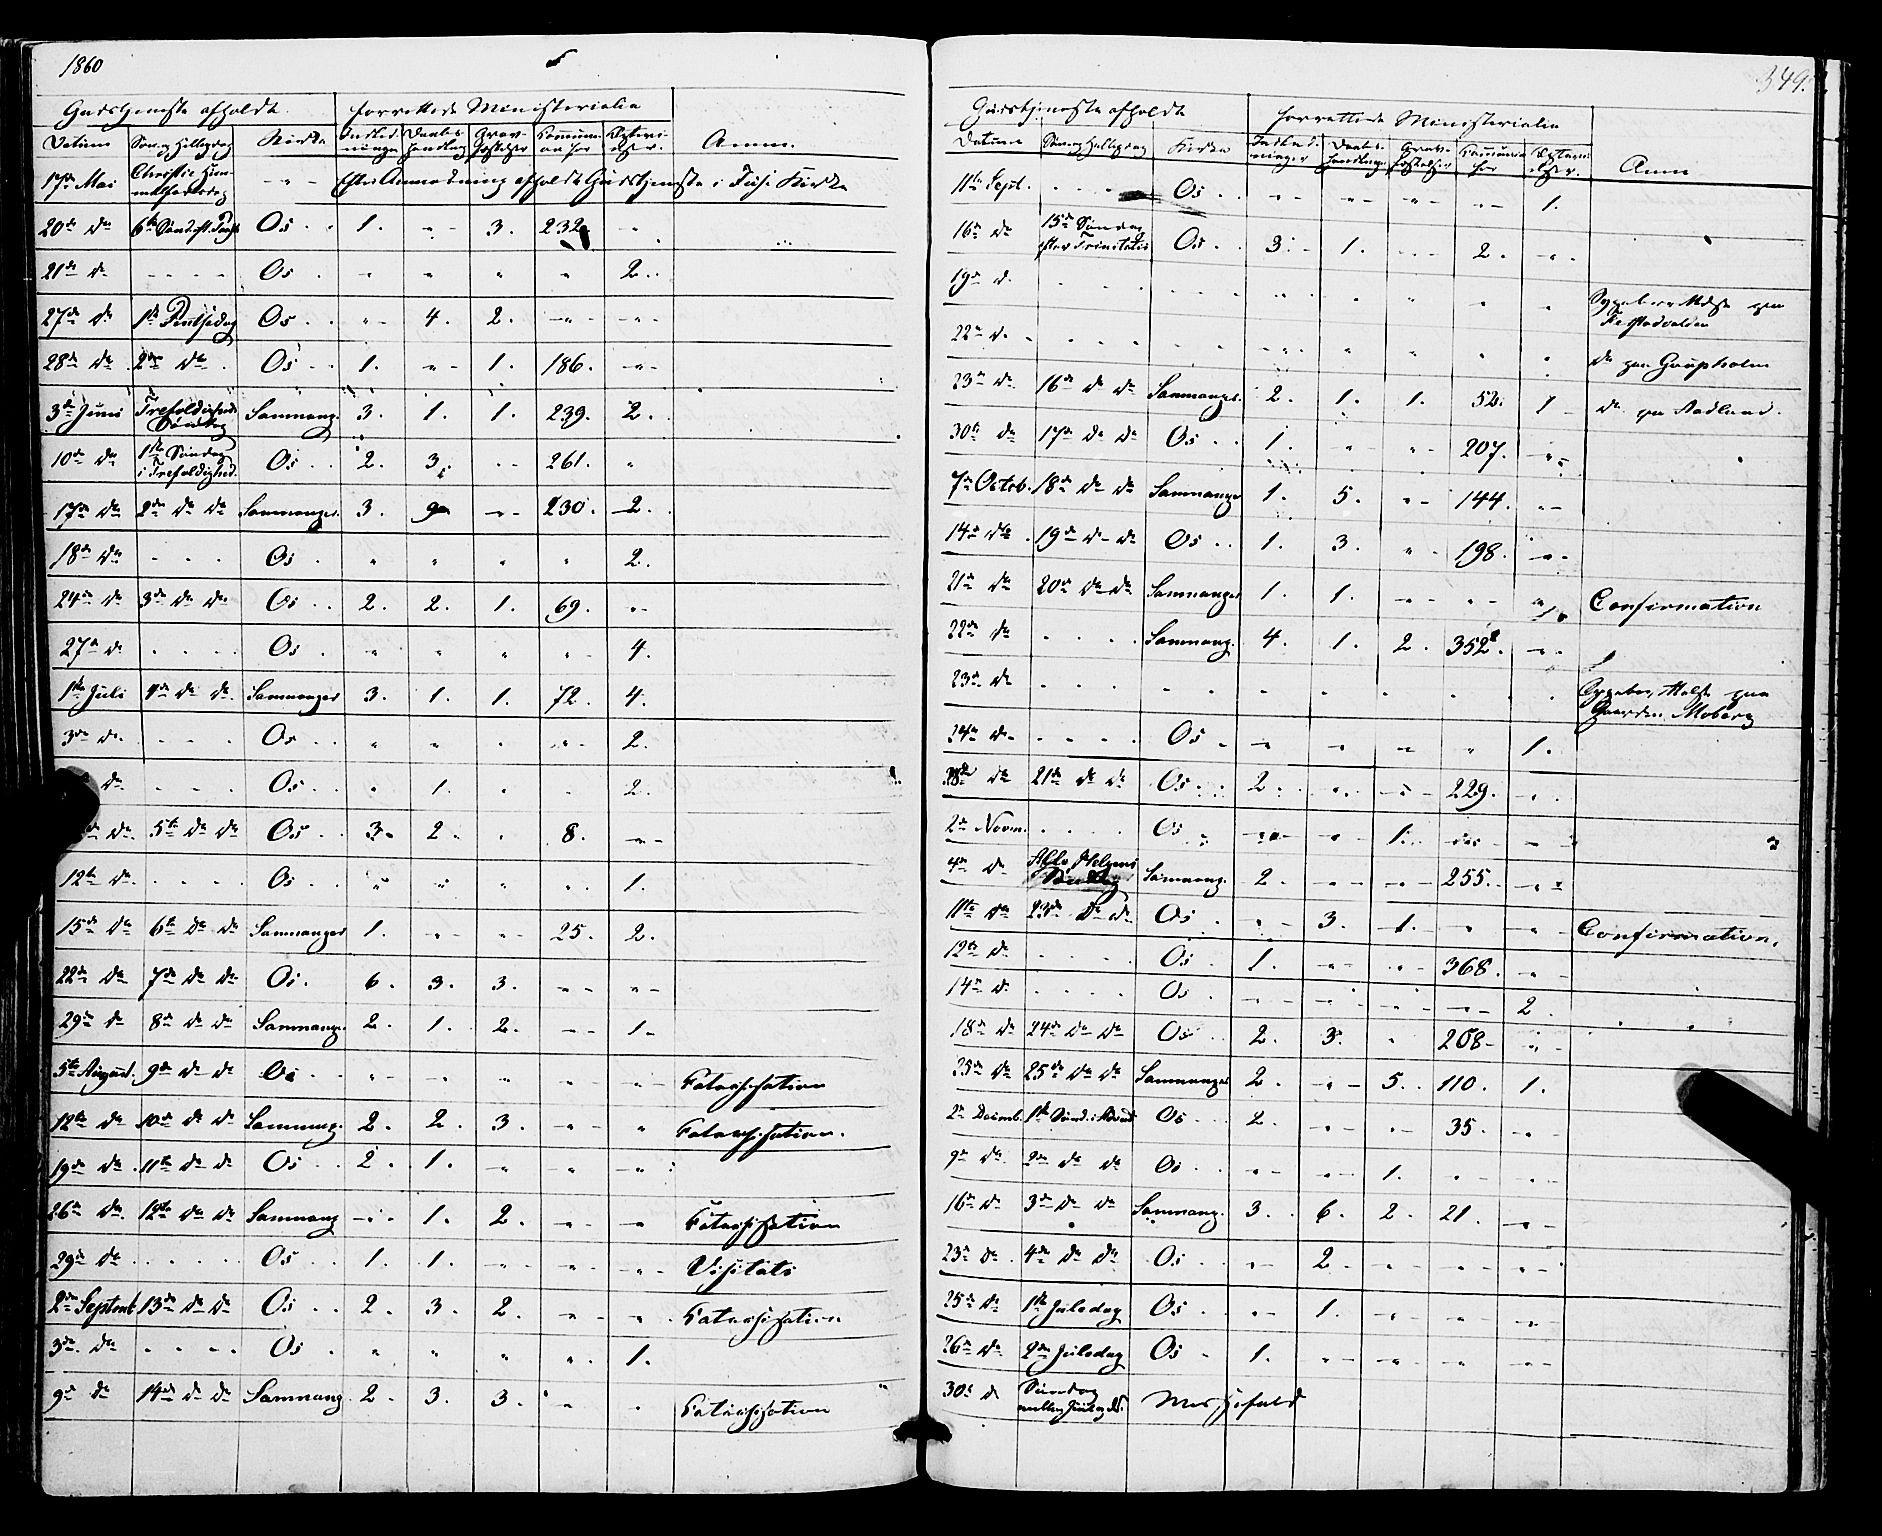 1860
Gudstjeneste afholdt forrettede Ministerialia
Datum Søn og Helligdag Kirke Indled- ninger Daabs- handling Grav- Commun- on for Anm.
17de Mai Christi Him- melfartsdag " - Efter Anmodning afholdt Gudstjeneste i Fuse Kirke
20de do 6te Sønd. eft. Os 1. " 3. 232. "
21de do - - - - Os " " " " 2.
27de do 1ste Pintsedag Os " 4. 2. " "
28de do 2den do Os 1. " 1. 186. "
3de Juni Trefoldigheds Søndag Samnang. 3. 1. 1. 239. 2.
10de do 1ste Søndag i Trefoldighed. Os 2. 3. " 261. "
17de do 2den do do Samnanger 3. 9 " 230. 2.
18de do - - - Os " " " " 2.
24de do 3de do do Os 2. 2. 1. 69. "
27de do - - - - Os " " " " 4.
1ste Juli 4de do do Samnanger 3. 1. 1. 72. 4.
3de do - - - Os " " " " 2.
do - - - Os " 1. " " 2.
do 5te do do Os 3. 2. " 8. "
12te do - - - - Os " " " " 1.
15de do 6te do do Samnanger 1. " " 25. 2.
22de do 7de do do Os. 6. 3. 3. " "
29de do 8de do do Samnange. 2. 1. 2. " 1.
5te August. 9de do do Os " " " " " Catechisation
12te do 10de do do Samnang. 2. 2. 3. " " Catechisation.
19de do 11te do do Os 2. 1. " " "
26de do 12te do do Samnang " 1. 2. " " Catechisation
29de do - - - - Os 1. 1. " " " Visitats
2den Septmb 13de do do Os 2. 3. 2. " " Catechisation
3de do - - - - Os " " " " 1.
9de do 14de do do Samnang. 2. 3. 3. " " Catechisation
349.
Gudstjeneste afholdt forrettede Ministerialia
Datum Søn og Helligdag Kirke Indled- ninger Daabs- handling Grav- Commun for Anm
11te Sept. - - - Os " " " " 1.
16de do 15de Søndag efter Trinitatis Os 3. 1. " 2. "
19de d. - - - - " " " " "
22de d. - - - - " " " " " do paa
23de do 16de do do Samnanger. 2. 1. 1. 52. 1 do paa Aadland.
30te do 17de do do Os 1. " " 207. "
7de Octob. 18de do do Samnanger 1. 5. " 144. "
14de do 19de do do Os 1. 3. " 198. "
21de do 20de do do Samnanger 1. 1. " " 1. Confirmation
22de do - - - - Samnang. 4. 1. 2. 352. "
23de do - - - - " " " " " paa Gaarden Moberg
24de do - - - - Os " " " " 1.
28de do 21de do do Os 2. " " 229. "
2de Novm. - - - - Os " " 1. " "
4de d Alle Helgens Søndag Samnang. 2. " " 255. "
11te do 23de do do Os " 3. 1. " " Confirmation.
12te do - - - - Os 1. " " 368. "
14de d. - - - - Os " " " " 2.
18de do 24de do do Os 2. 3. " 208 "
25de do 25de do do Samnanger 2. " 5. 110. 1.
2de Decemb. 1ste Sønd. i Advent Os 2. " " 35. "
9de do. 2den do do Os " " 1. " "
16de d. 3de do do Samnang. 3. 6. 2. 21. "
23de do 4de do do Os " 2. " " "
25de do 1ste Juledag Os " 1. " " "
26de do 2den Juledag Os 1. " " " "
30te d Søndag Messefald